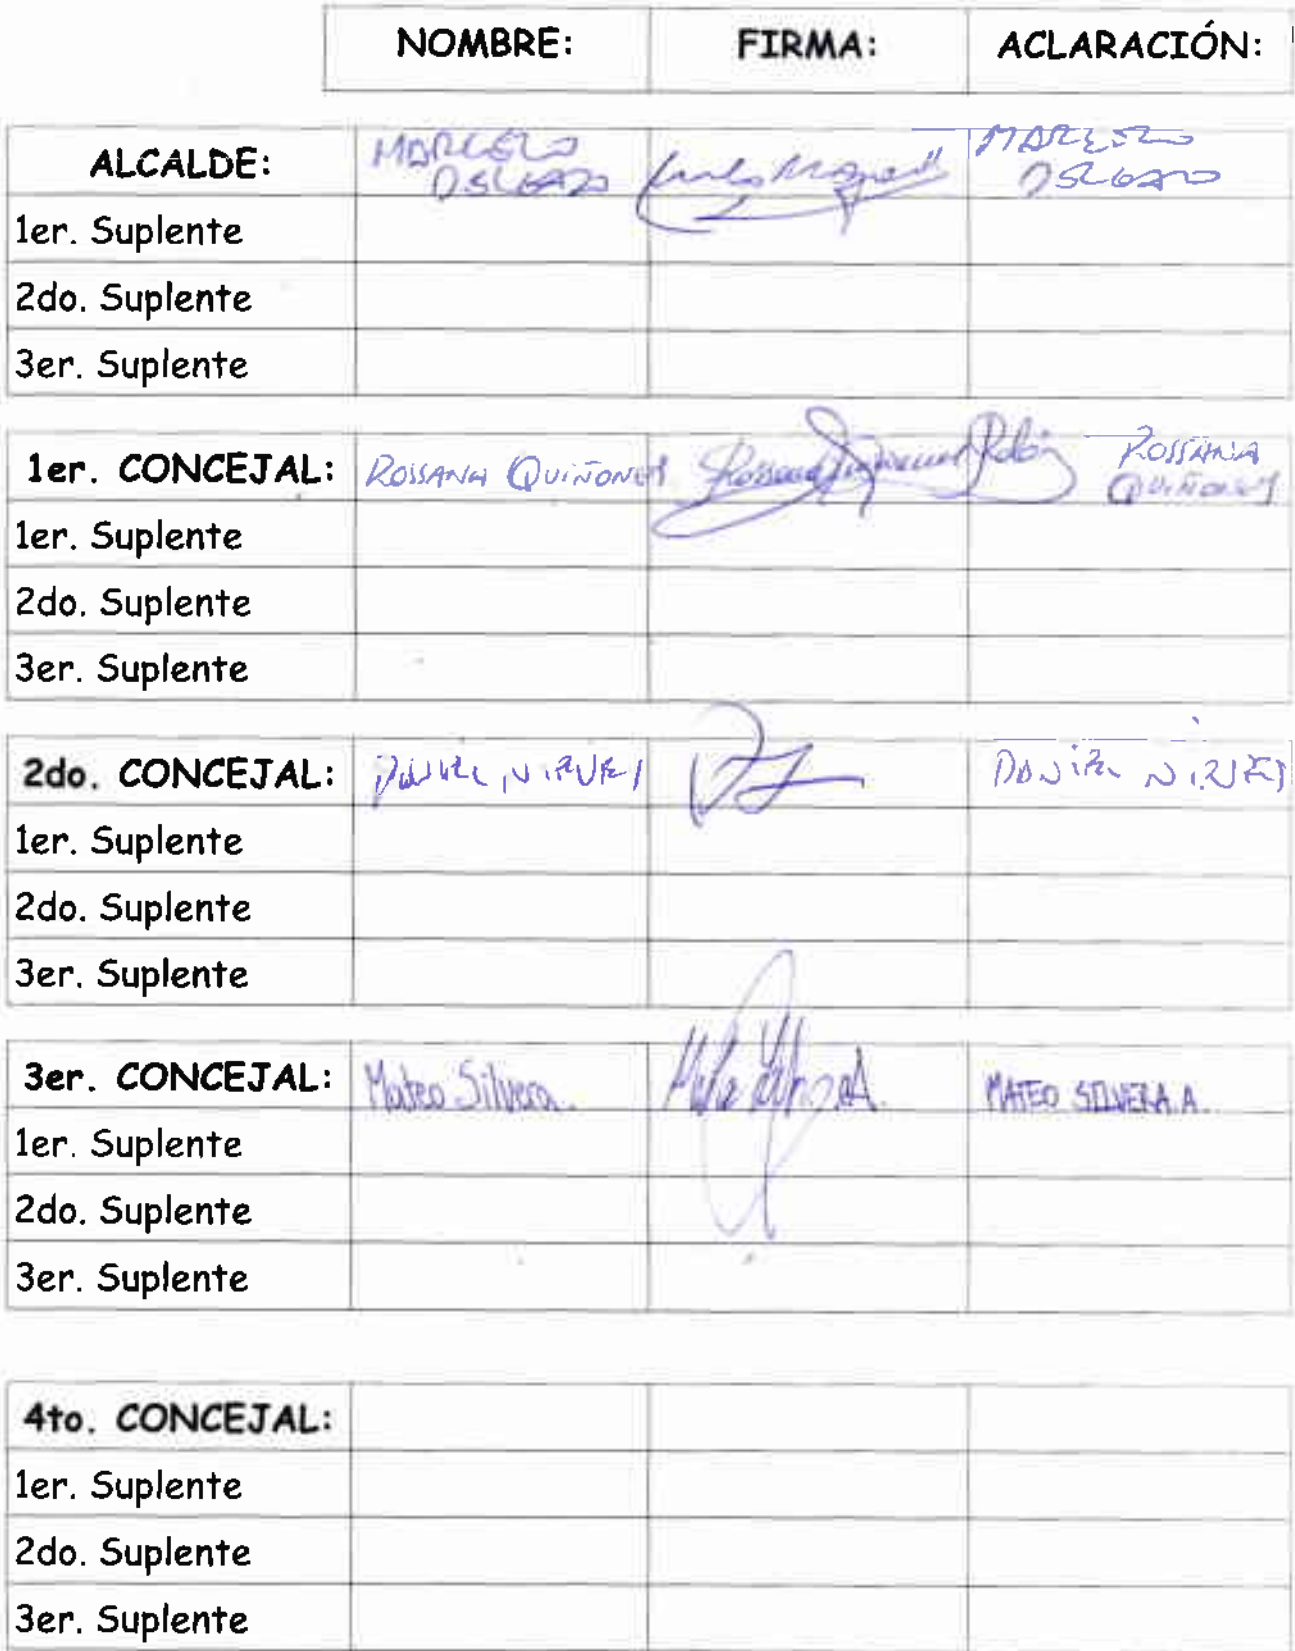 NOMBRE: FIRMA: ACLARACIÓN:
ALCALDE: MARCELO DELGADO MARCELO DELGADO
1er. Suplente
2do. Suplente
3er. Suplente
1er. CONCEJAL: ROSSANA QUIÑONES ROSSANA QUIÑONES
1er. Suplente
2do. Suplente
3er. Suplente
2do. CONCEJAL: DANIEL DANIEL
1er. Suplente
2do. Suplente
3er. Suplente
3er. CONCEJAL: Mateo Silvera. MATEO SILVERA.A.
1er. Suplente
2do. Suplente
3er. Suplente
4to. CONCEJAL:
1er. Suplente
2do. Suplente
3er. Suplente